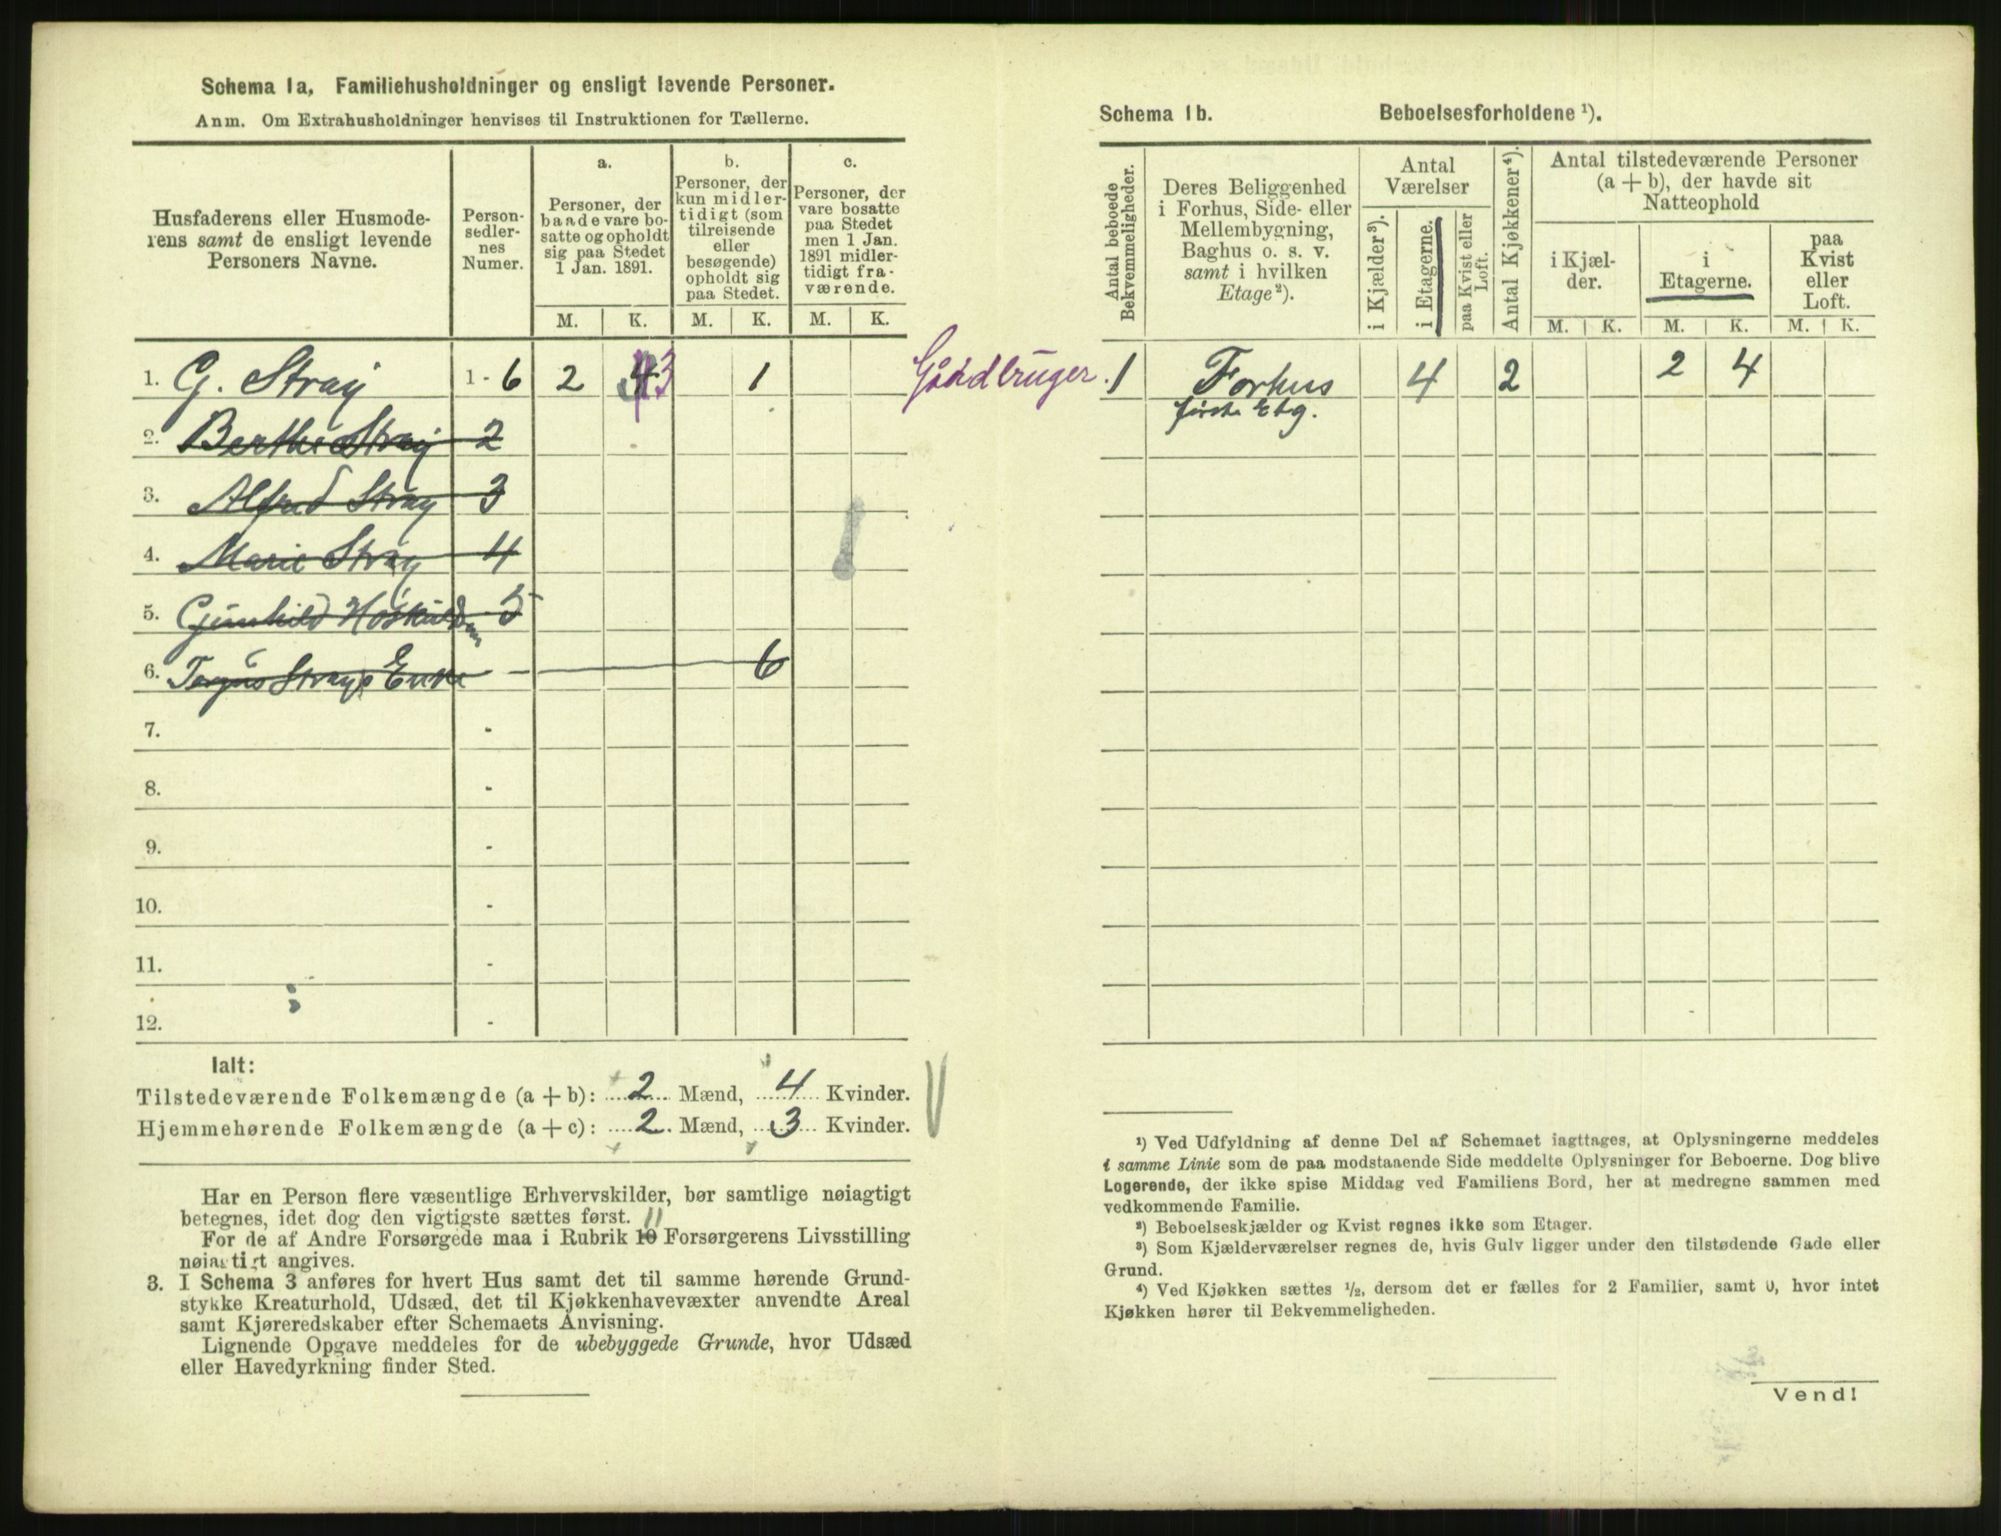 Schema 1a. Familiehusholdninger og ensligt levende Personer.
Anm. Om Extrahusholdninger henvises til Instruktionen for Tællerne.
Husfaderens eller Husmode-
rens samt de ensligt levende
Personers Navne.
Person-
sedler-
nes
Numer.
a.
Personer, der
baade vare bo-
satte og opholdt
sig paa Stedet
1 Jan. 1891.
b.
Personer, der
kun midler-
tidigt (som
tilreisende
eller
besøgende)
opholdt sig
paa Stedet.
c.
Personer, der
vare bosatte
paa Stedet
men 1 Jan.
1891 midler-
tidigt fra-
værende.
M. K. M. K. M. K.
1. G. Stray 1 - 6 2 3 1 Gårdbruger
2. Berthe Stray 2
3. Alfred Stray 3
4. Marie Stray 4
5. Gunhild Høskuldsen 5
6. Terjus Strays Enke - 6
7. -
8. -
9. -
10. -
11. -
12. -
Ialt:
Tilstedeværende Folkemængde (a + b): 2 Mænd, 4 Kvinder.
Hjemmehørende Folkemængde (a + c): 2 Mænd, 3 Kvinder.
Har en Person flere væsentlige Erhvervskilder, bør samtlige nøiagtigt
betegnes, idet dog den vigtigste sættes først.
11
For de af Andre Forsørgede maa i Rubrik 10 Forsørgerens Livsstilling
nøiagtigt angives.
3. I Schema 3 anføres for hvert Hus samt det til samme hørende Grund-
stykke Kreaturhold, Udsæd, det til Kjøkkenhavevæxter anvendte Areal
samt Kjøreredskaber efter Schemaets Anvisning.
Lignende Opgave meddeles for de ubebyggede Grunde, hvor Udsæd
eller Havedyrkning finder Sted.
Schema 1b. Beboelsesforholdene ¹).
Antal beboede
Bekvemmeligheder.
Deres Beliggenhed
i Forhus, Side- eller
Mellembygning,
Baghus o. s. v.
samt i hvilken
Etage²).
Antal
Værelser
i Kjælder³).
i Etagerne.
paa Kvist eller
Loft.
Antal Kjøkkener⁴).
Antal tilstedeværende Personer
(a + b), der havde sit
Natteophold
i Kjæl-
der.
i
Etagerne.
paa
Kvist
eller
Loft.
M. K. M. K. M. K.
1 Forhus 4 2 2 4
første Etg.
¹) Ved Udfyldning af denne Del af Schemaet iagttages, at Oplysningerne meddeles
i samme Linie som de paa modstaaende Side meddelte Oplysninger for Beboerne. Dog blive
Logerende, der ikke spise Middag ved Familiens Bord, her at medregne sammen med
vedkommende Familie.
²) Beboelseskjælder og Kvist regnes ikke som Etager.
³) Som Kjælderværelser regnes de, hvis Gulv ligger under den tilstødende Gade eller
Grund.
⁴) Ved Kjøkken sættes ½, dersom det er fælles for 2 Familier, samt 0, hvor intet
Kjøkken hører til Bekvemmeligheden.
Vend!